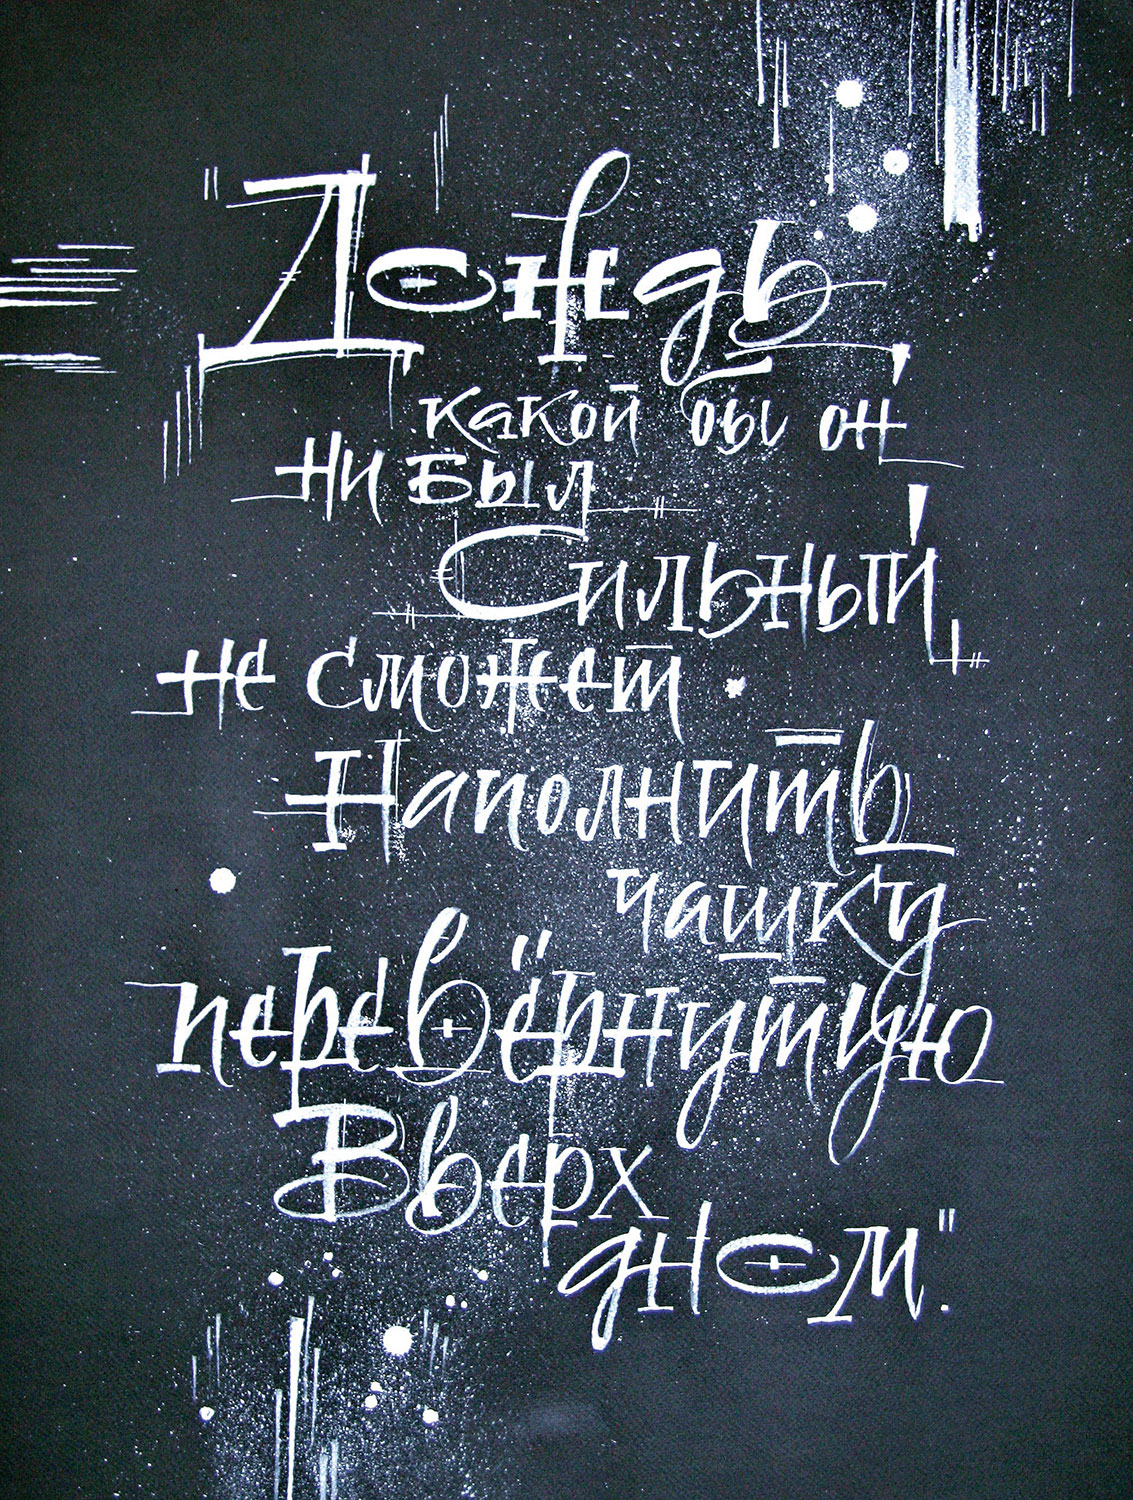 "Дождь,
какой бы он
ни был
Сильный,
не сможет
Наполнить
чашку
перевёрнутую
Вверх
дном".